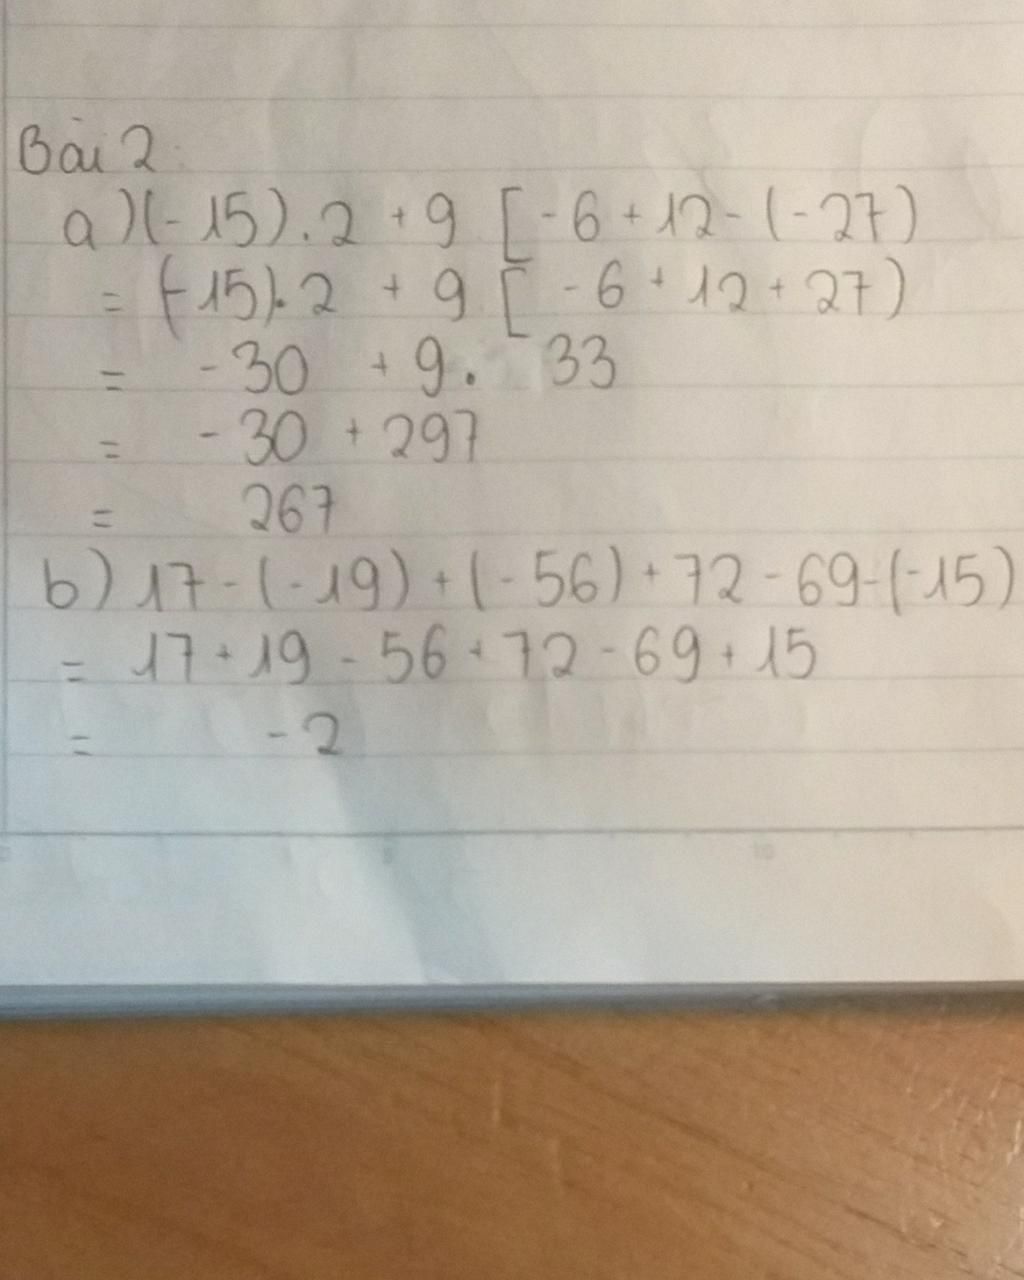 Bài 2:
a) (-15).2 + 9 [-6 + 12 - (-27)
= (-15).2 + 9 [ -6 + 12 + 27)
= -30 + 9. 33
= -30 + 297
= 267
b) 17 - (-19) + (-56) + 72 - 69 - (-15)
= 17 + 19 - 56 + 72 - 69 + 15
= -2
10